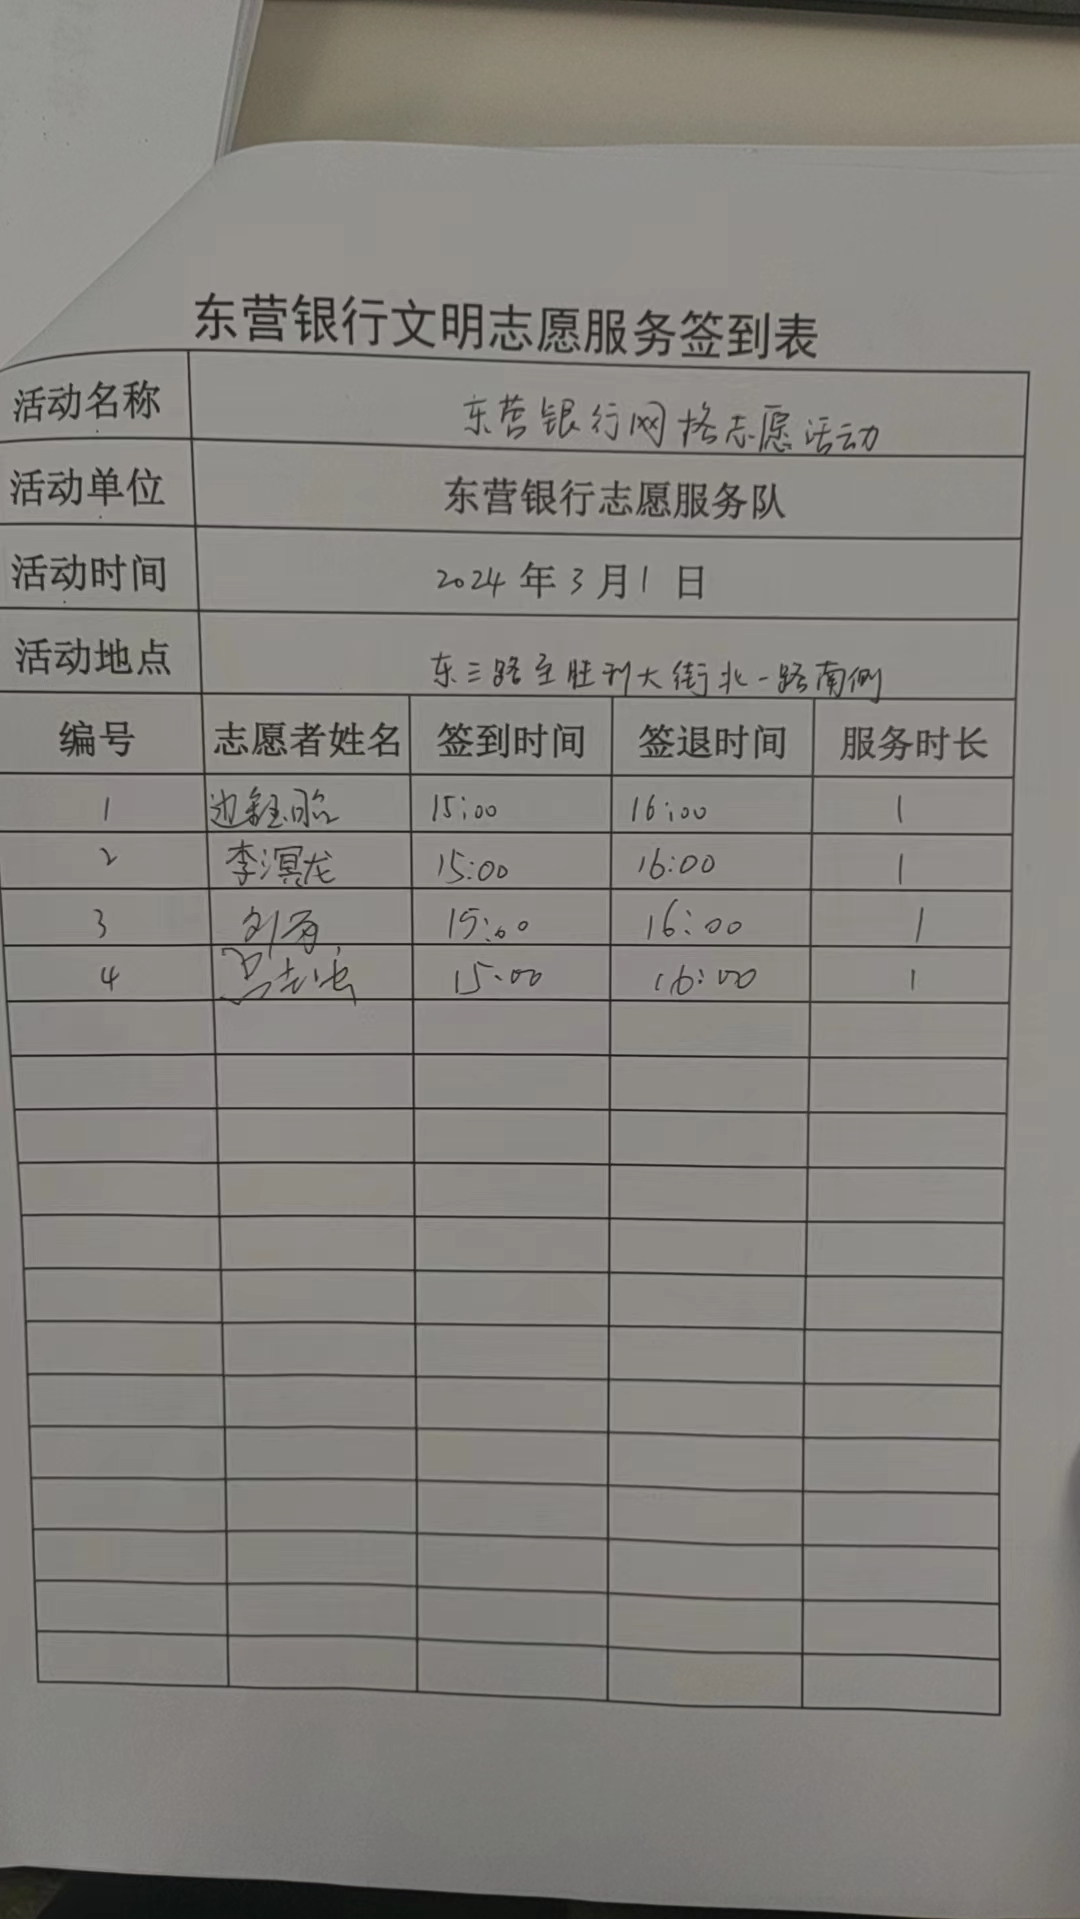 东营银行文明志愿服务签到表
活动名称 东营银行网格志愿活动
活动单位 东营银行志愿服务队
活动时间 2024年3月1日
活动地点 东三路至胜利大街北一路南侧
编号 志愿者姓名 签到时间 签退时间 服务时长
1 边钰昭 15:00 16:00 1
2 李溟龙 15:00 16:00 1
3 15:00 16:00 1
4 15:00 16:00 1